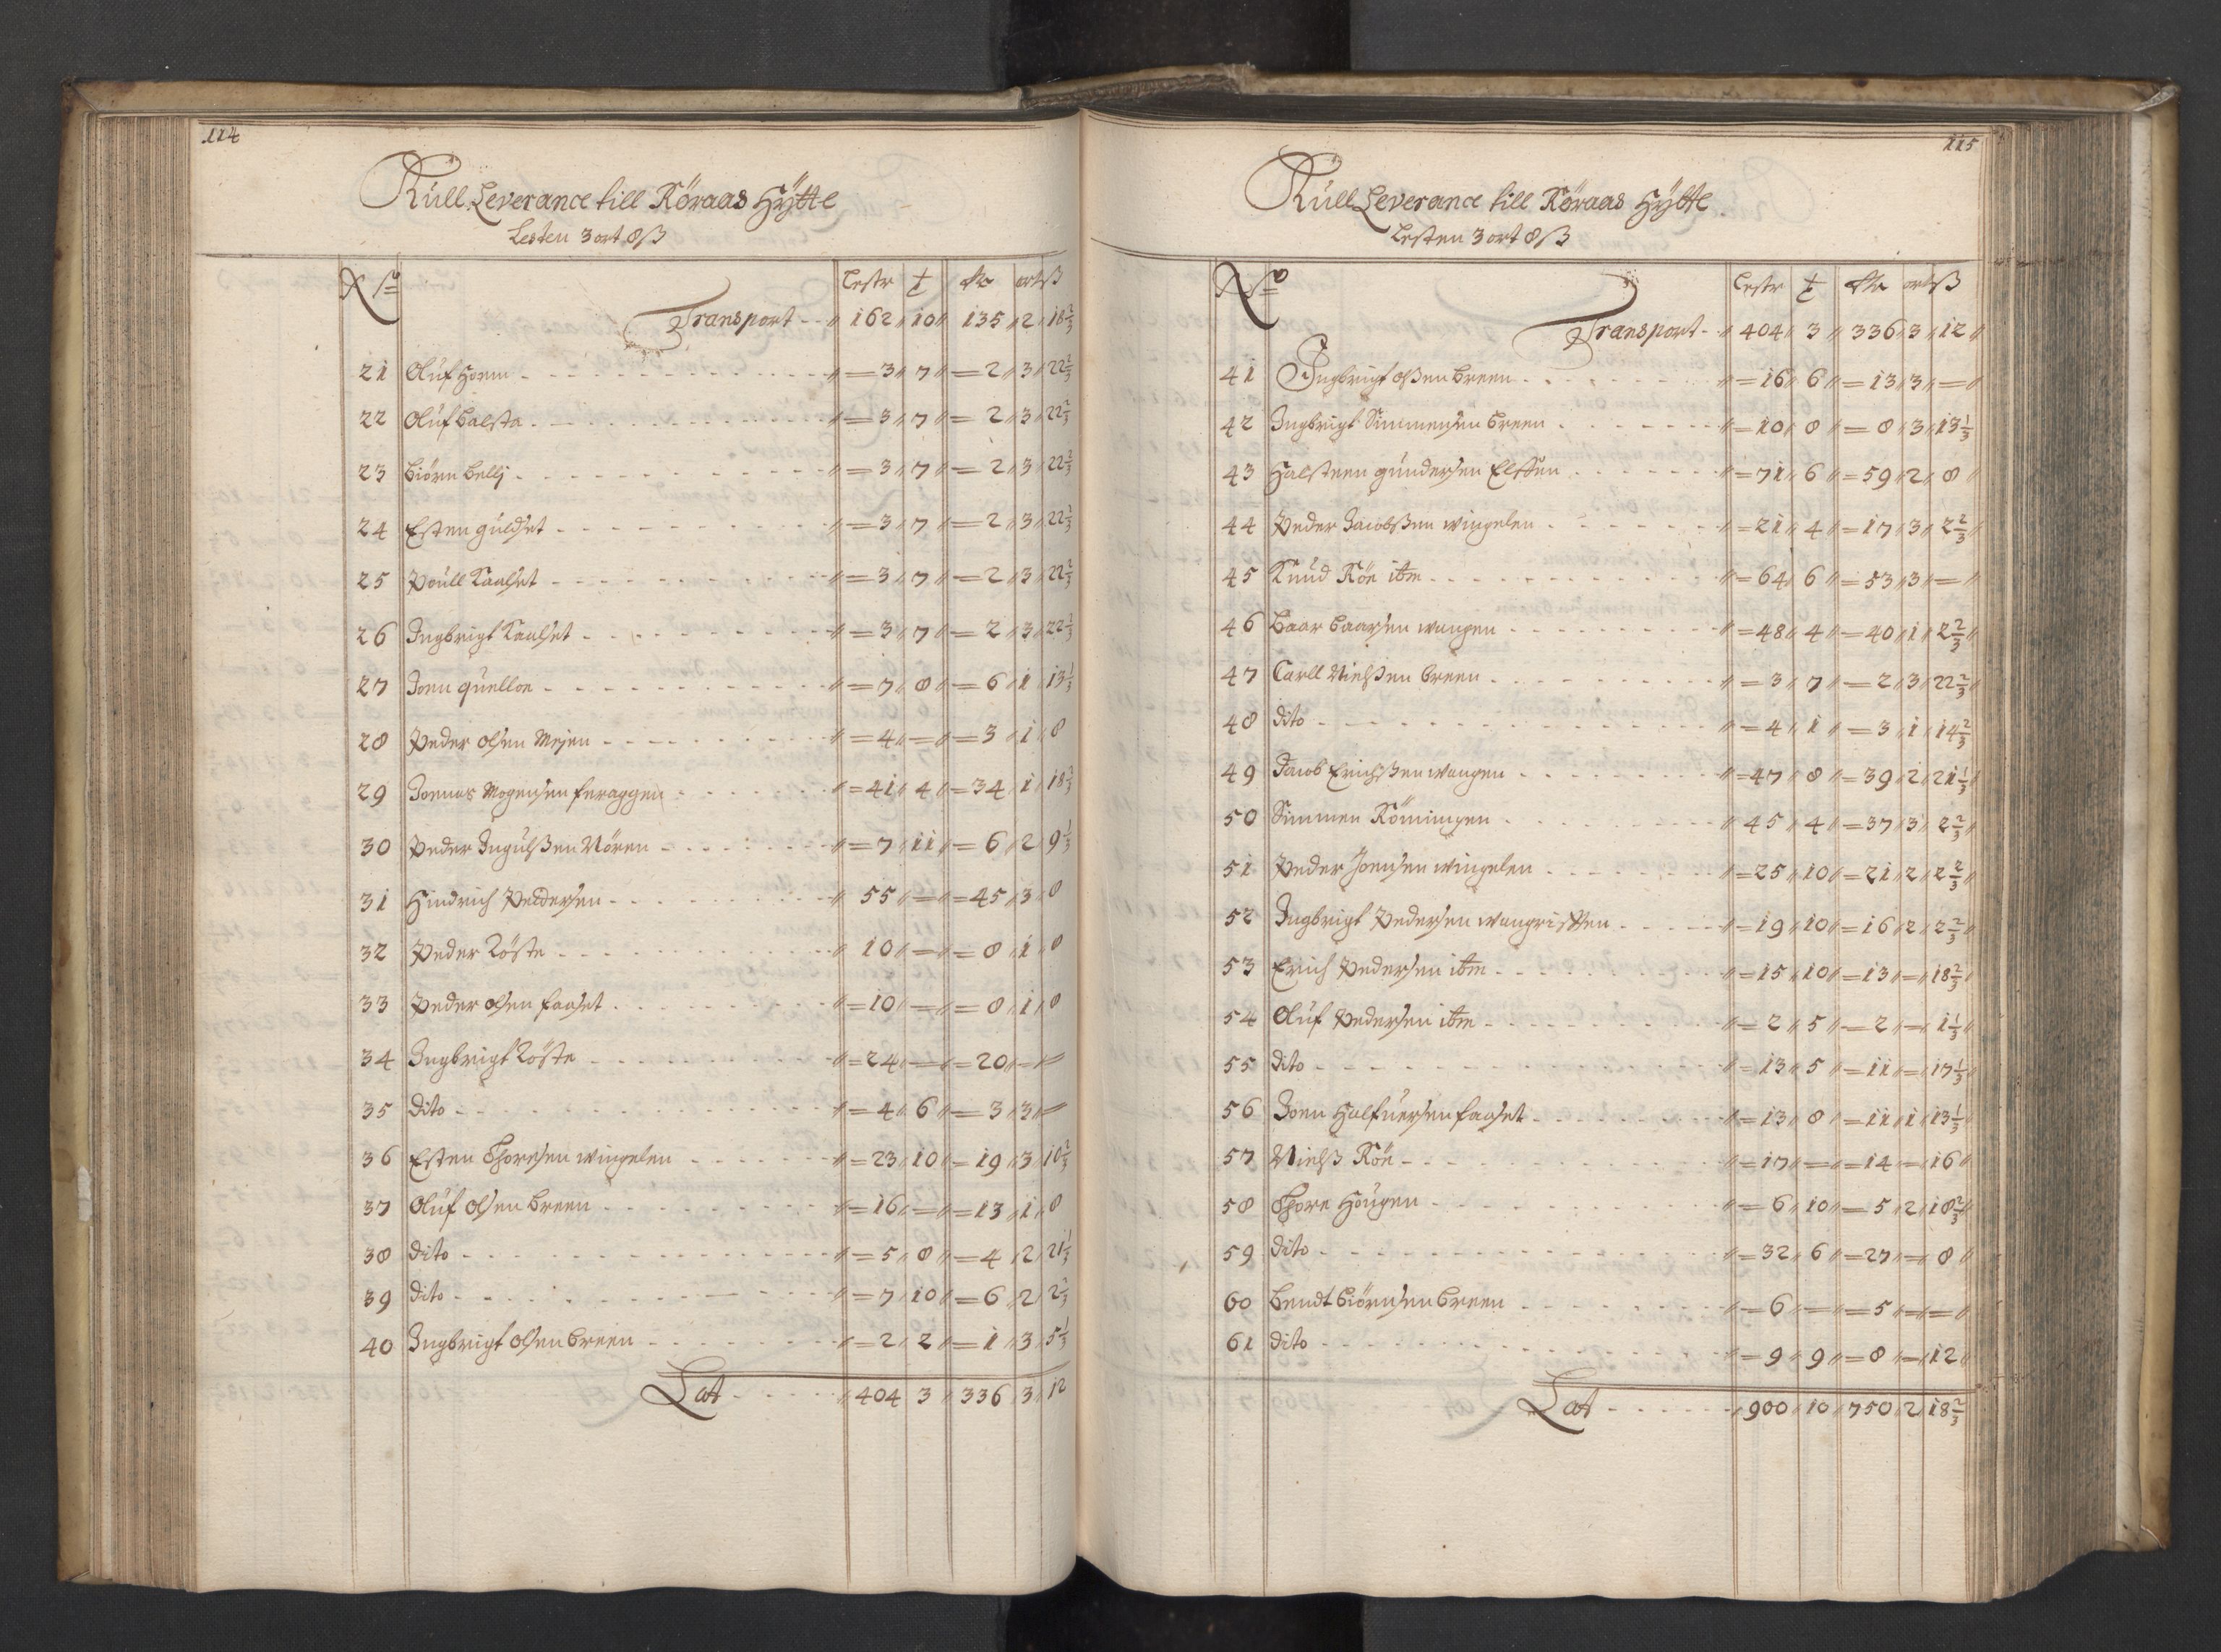 114
Kull Leverance till Röraas Hÿtte
Lesten 3 ort 8 ß
No Lestr t Rdr ort ß
Transport - - 162 10 135 2 18⅔
21 Oluf Horm - 3 7 2 3 22⅔
22 Oluf Balsta - 3 7 2 3 22⅔
23 Biörn Bellj - 3 7 2 3 22⅔
24 Esten Guldset - 3 7 2 3 22⅔
25 Poull Kaalset - 3 7 2 3 22⅔
26 Ingbrigt Kaalset - 3 7 2 3 22⅔
27 Joen Quelloe - 7 8 6 1 13⅓
28 Peder Olsen Mejen - 4 = 3 1 8
29 Joenas Mogensen feraggen - 41 4 34 1 18⅔
30 Peder Ingulßen Nören - 7 11 6 2 9⅓
31 Hindrich Peddersen - 55 = 45 3 8
32 Peder Röste - 10 = 8 1 8
33 Peder Olsen faaset - 10 = 8 1 8
34 Ingbrigt Röste - 24 = 20 = =
35 Dito - 4 6 3 3 =
36 Esten Thoresen Wingelen - 23 10 19 3 10⅔
37 Oluf Olsen Breen - 16 = 13 1 8
38 Dito - 5 8 4 2 21⅓
39 Dito - 7 10 6 2 2⅔
40 Ingbrigt Olsen Breen - 2 2 1 3 5⅓
Lat - 404 3 336 3 12
115
Kull Leverance till Röraas Hÿtte
Lesten 3 ort 8 ß
No Lestr t Rdr ort ß
Transport - 404 3 336 3 12
41 Ingbrigt Olßen Breen - 16 6 13 3 =
42 Ingbrigt Simmensen Breen - 10 8 8 3 13⅓
43 Halsteen Gundersen Elften - 71 6 59 2 8
44 Peder Jacobßen Wingelen - 21 4 17 3 2⅔
45 Knud Röe itm - 64 6 53 3 =
46 Baar Baarsen Wangen - 48 4 40 1 2⅔
47 Carll Nielßen Breen - 3 7 2 3 22⅔
48 Dito - 4 1 3 1 14⅔
49 Jacob Erichßen Wangen - 47 8 39 2 21⅓
50 Simmen Röningen - 45 4 37 3 2⅔
51 Peder Joensen Wingelen - 25 10 21 2 2⅔
52 Ingbrigt Pedersen Wangristen - 19 10 16 2 2⅔
53 Erich Pedersen itm - 15 10 13 = 18⅔
54 Oluf Pedersen itm - 2 5 2 = 1⅓
55 Dito - 13 5 11 = 17⅓
56 Joen Halfuersen faaset - 13 8 11 1 13⅓
57 Nielß Röe - 17 = 14 = 16
58 Thore Hougen - 6 10 5 2 18⅔
59 Dito - 32 6 27 = 8
60 Bendt Biörnsen Breen - 6 = 5 = =
61 Dito - 9 9 8 = 12
Lat - 900 10 750 2 18⅔